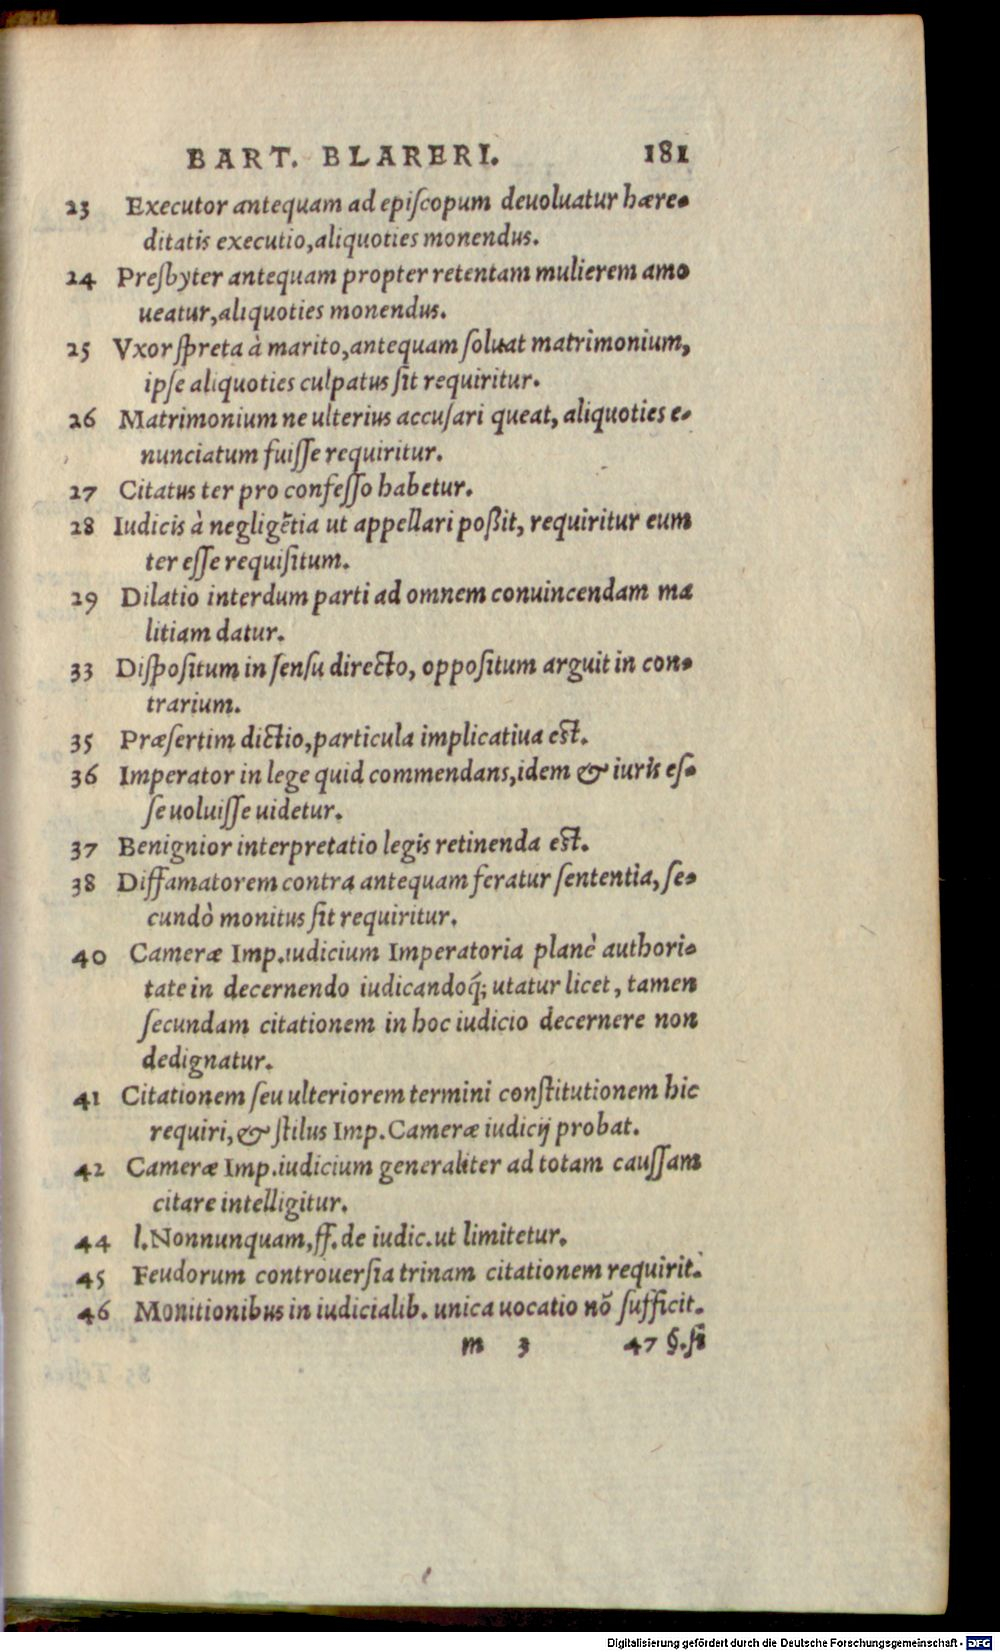 BART. BLARERI. 181
23 Executor antequam ad epiſcopum deuoluatur hære-
ditatis executio, aliquoties monendus.
24 Preſbyter antequam propter retentam mulierem amo
ueatur, aliquoties monendus.
25 Vxor ſpreta à marito, antequam ſoluat matrimonium,
ipſe aliquoties culpatus ſit requiritur.
26 Matrimonium ne ulterius accuſari queat, aliquoties e-
nunciatum fuiſſe requiritur.
27 Citatus ter pro confeſſo habetur.
28 Iudicis à negligẽtia ut appellari poßit, requiritur eum
ter eſſe requiſitum.
29 Dilatio interdum parti ad omnem conuincendam ma
litiam datur.
33 Diſpoſitum in ſenſu directo, oppoſitum arguit in con-
trarium.
35 Præſertim dictio, particula implicatiua eſt.
36 Imperator in lege quid commendans, idem & iuris eſ-
ſe uoluiſſe uidetur.
37 Benignior interpretatio legis retinenda eſt.
38 Diffamatorem contra antequam feratur ſententia, ſe-
cundò monitus ſit requiritur.
40 Cameræ Imp. iudicium Imperatoria planè authori-
tate in decernendo iudicandoq́; utatur licet, tamen
ſecundam citationem in hoc iudicio decernere non
dedignatur.
41 Citationem ſeu ulteriorem termini conſtitutionem hic
requiri, & ſtilus Imp. Cameræ iudicij probat.
42 Cameræ Imp. iudicium generaliter ad totam cauſſam
citare intelligitur.
44 l. Nonnunquam, ff. de iudic. ut limitetur.
45 Feudorum controuerſia trinam citationem requirit.
46 Monitionibus in iudicialib. unica uocatio nõ ſufficit.
m 3 47 §. ſi
Digitalisierung gefördert durch die Deutsche Forschungsgemeinschaft - DFG